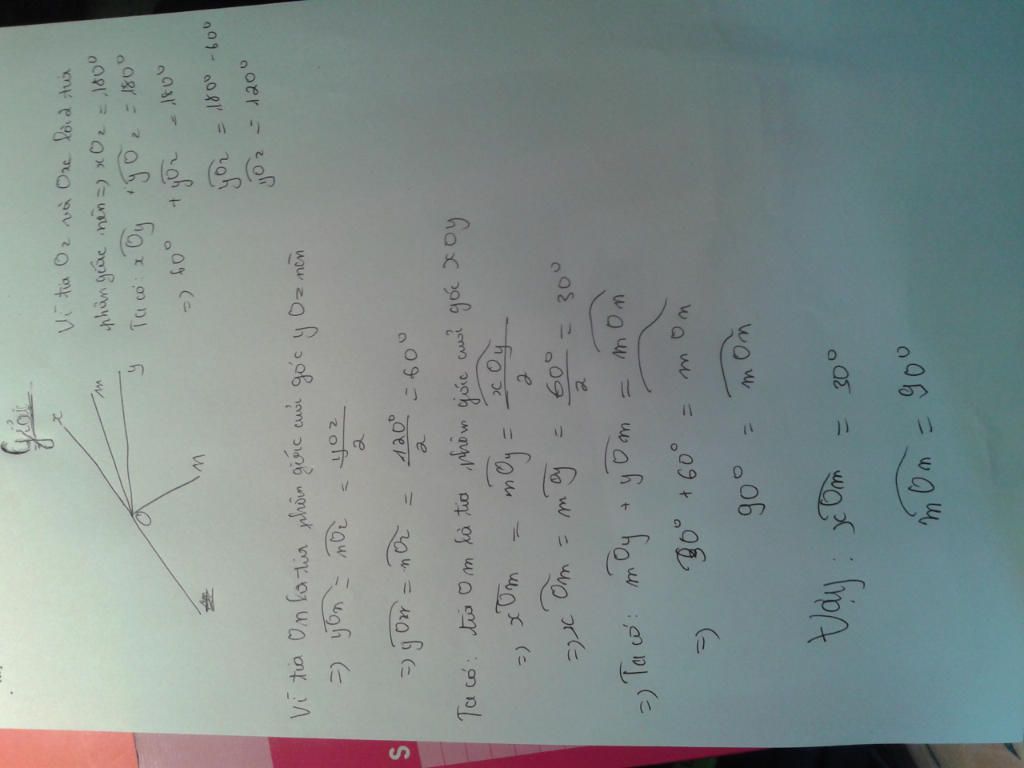 Giải
x
m
y
O
n
Vì tia Oz và Ox là 2 tia
phân giác nên => xOz = 180°
Ta có: xOy + yOz = 180°
=> 60° + yOz = 180°
yOz = 180° - 60°
yOz = 120°
Vì tia On là tia phân giác của góc yOz nên
=> yOn = nOz = yOz/2
=> yOn = nOz = 120°/2 = 60°
Ta có: tia Om là tia phân giác của góc xOy
=> xOm = mOy = xOy/2
=> xOm = mOy = 60°/2 = 30°
=> Ta có: mOy + yOm = mOn
=> 30° + 60° = mOn
90° = mOn
Vậy: xOm = 30°
mOn = 90°
S